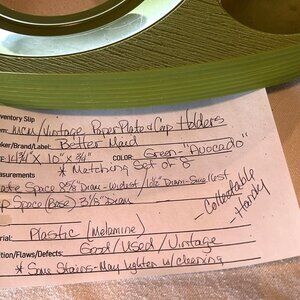 nventory Slip
em: MCM/Vintage Paper Plate & Cup Holders
aker/Brand/Label: Better Maid
E: 14¾" X 10" X ¾" COLOR: Green-"Avocado"
* Matching Set of 8
easurements
ate Space 8⅝" Diam
p Space (Base) 3⅛" Diam
- Collectable
- Handy
rial: Plastic (Melamine)
ition/Flaws/Defects: Good/Used/Vintage
* Some Stains-May lighten w/cleaning